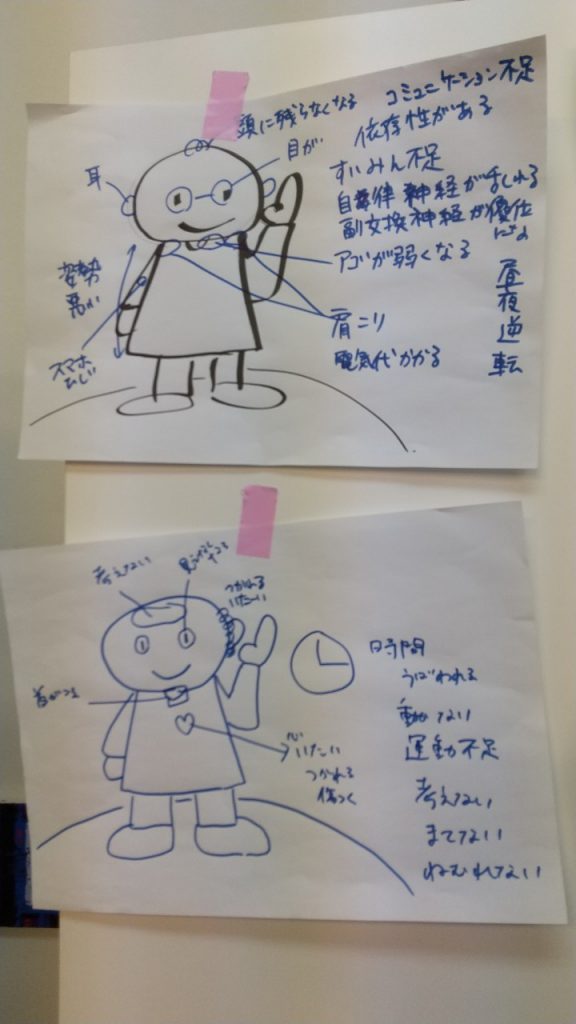 頭に残らなくなる
コミュニケーション不足
依存性がある
目が
耳
すいみん不足
自律神経がみだれる
副交換神経が優位
にな
アゴが弱くなる
姿勢
悪い
肩こり
スマホ
ひじ
電気代かかる
昼夜逆転
考えない
つかれる
いたい
時間
うばわれる
動かない
運動不足
考えない
まてない
ねむれない
心
いたい
つかれる
傷つく